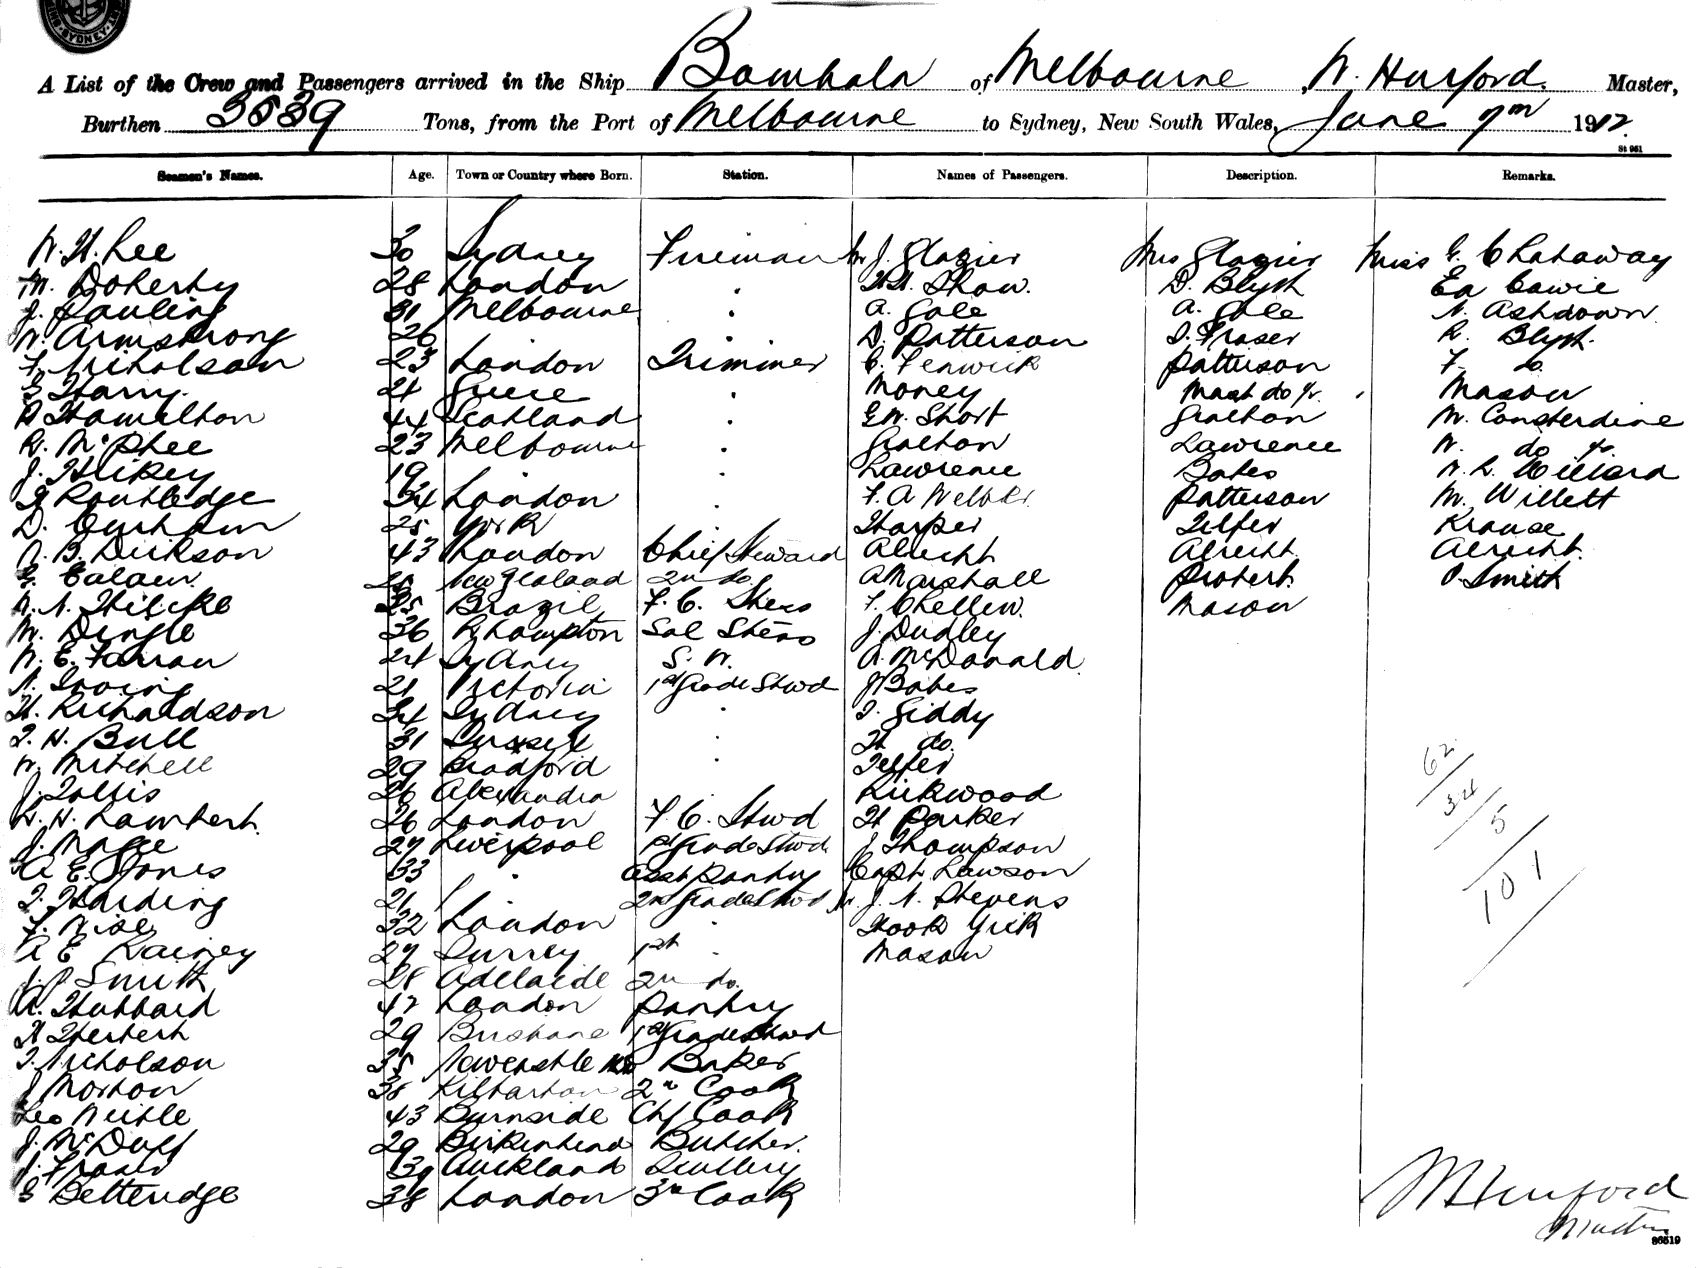 SYDNEY
A List of the Crew and Passengers arrived in the Ship Bombala of Melbourne W. Hurford. Master,
Burthen 3539 Tons, from the Port of Melbourne to Sydney, New South Wales, June 9th 1912.
St 961
Seamen's Names. Age. Town or Country where Born. Station. Names of Passengers. Description. Remarks.
W. H. Lee 30 Sydney Fireman Mr J. Glazier Mrs Glazier Miss G. Chataway
M. Doherty 28 London " H. H. Shaw. D. Blyth Cowie
J. Pauling 31 Melbourne " A. Gole A. Gole N. Ashdown
W. Armstrong 26 " D. Patterson D. Fraser R. Blyth.
F. Nicholson 23 London Trimmer C. Fenwick Patterson F. do.
Harry. 24 Greece " Money Mast do jr. Mason
A Hamilton 44 Scotland " E. W. Short Gralton W. Consterdine
R. McPhee 23 Melbourne " Gralton Lawrence W. do jr.
J. Hickey 19 " " Lawrence Bates W. R. Willard
G Routledge 34 London " F. A Webber Patterson M. Willett
D. 25 York Harper Telfer Krause
A. B. Dickson 43 London Chief Steward Albrecht Albrecht. Albrecht.
New Zealand 2nd do. A Marshall Probert. P. Smith
35 Brazil F. C. Stwss F. Chellew. Mason
M. Dingle 36 Rhampton Sal Stwss J. Dudley
W. E. Farran 24 Sydney S. W. A. McDonald
A. Irving 21 Victoria 1st Grade Stwd J Bates
H. Richardson 34 Sydney " J. Giddy
T. H. Bull 31 Sussex " H do.
W. Mitchell 29 Bradford " Telfer
J. Tollis 26 Alexandria Kirkwood
H. H. Lambert. 26 London F. C. Stwd H Parker
J. Magee 27 Liverpool 1st Grade Stwd J Thompson
A E. Jones 33 " Asst Pantry Capt. Lawson
T. Harding 21 " 2nd Grade Stwd Mr J. N. Stevens
F. Wise 32 London " Hook Yick
A E Rainey 27 Surrey 1st " Mason
J. P Smith 28 Adelaide 2nd do.
A. Hubbard 47 London Pantry
A Herbert 29 Brisbane 1st Grade Stwd
T. Nicholson 35 Newcastle Baker
J Morton 38 Kilbarchan 2nd Cook
Leo 43 Burnside Chf Cook
J. McDuff 29 Birkenhead Butcher.
J. Fraser 39 Auckland Scullery
S Betteridge 38 London 3rd Cook
62
34
5
101
W Hurford
Master
86519